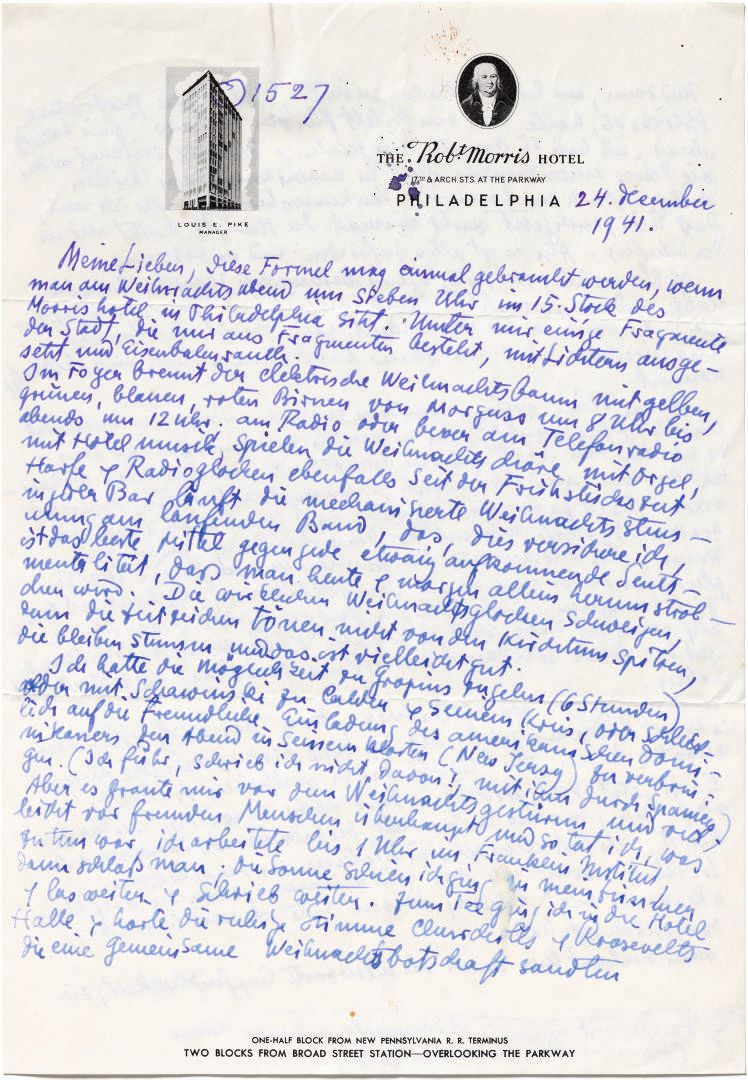 1527
LOUIS E. PIKE
MANAGER
THE Robt. Morris HOTEL
17TH & ARCH STS. AT THE PARKWAY
PHILADELPHIA 24. Dezember
1941.
Meine Lieben, diese Formel mag einmal gebraucht werden, wenn
man am Weihnachtsabend um Sieben Uhr im 15. Stock des
Morrishotel in Philadelphia sitzt. Unter mir einige Fragmente
der Stadt, die nur aus Fragmenten besteht, mit Lichtern ausge-
setzt und Eisenbahnrauch.
Im Foyer brennt der elektrische Weihnachtsbaum mit gelben,
grünen, blauen, roten Birnen von Morgens um 8 Uhr bis
abends um 12 Uhr. am Radio oder besser am Telefonradio
mit Hotelmusik, spielen die Weihnachtschöre mit Orgel,
Harfe & Radioglocken ebenfalls seit der Frühstückszeit
in der Bar läuft die mechanisierte Weihnachtsstim-
mung am laufenden Band, das, dies versichere ich,
ist das beste Mittel gegen jede etwa aufkommende Senti-
mentalität, daß man heute & morgen allein
chen wird. Die wirklichen Weihnachtsglocken Schweigen,
denn die tönen nicht von den Kirchturm Spitzen,
die bleiben stumm und das ist vielleicht gut.
Ich hatte die Möglichkeit zu Gropius zugehen (6 Stunden)
oder mit Schawinski zu Calder & seinem Kreis, oder schließ-
lich auf die freundliche Einladung des amerikanischen Domi-
nikaners den Abend in seinem Kloster (New Jersey) zu verbrin-
gen. (Ich fuhr, schrieb ich nicht davon?, mit ihm durch Spanien)
Aber es graute mir vor dem Weihnachtsgestürm und viel-
leicht vor fremden Menschen überhaupt und so tat ich, was
zu tun war, ich arbeitete bis 1 Uhr im Franklin Institut
dann schlaß man, die Sonne schien ich ging in menschenleeren
& las weiter & schrieb weiter. Zum Tee ging ich in die Hotel
Halle & hörte die ruhige Stimme Churchills & Roosevelts
die eine gemeinsame Weihnachtsbotschaft sandten
ONE-HALF BLOCK FROM NEW PENNSYLVANIA R. R. TERMINUS
TWO BLOCKS FROM BROAD STREET STATION—OVERLOOKING THE PARKWAY